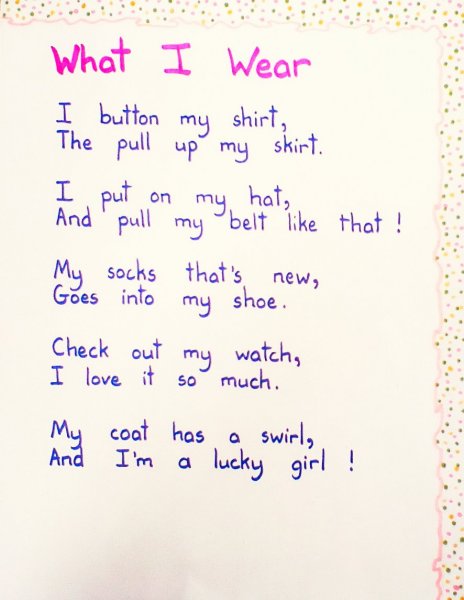 What I Wear
I button my shirt,
The pull up my skirt.
I put on my hat,
And pull my belt like that !
My socks that's new,
Goes into my shoe.
Check out my watch,
I love it so much.
My coat has a swirl,
And I'm a lucky girl !